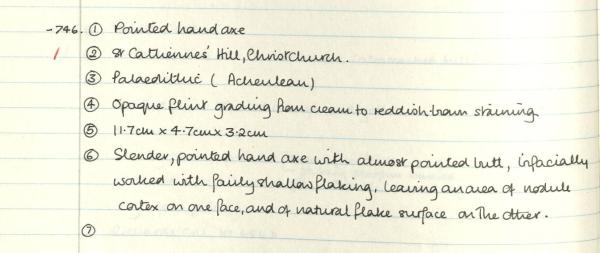 -746. ① Pointed hand axe
/ ② St Catherines' Hill, Christchurch.
③ Palaeolithic (Acheulean)
④ Opaque flint grading from cream to reddish-brown staining
⑤ 11.7cm x 4.7cm x 3.2cm
⑥ Slender, pointed hand axe with almost pointed butt, bifacially
worked with fairly shallow flaking, leaving an area of nodule
cortex on one face, and of natural flake surface on the other.
⑦